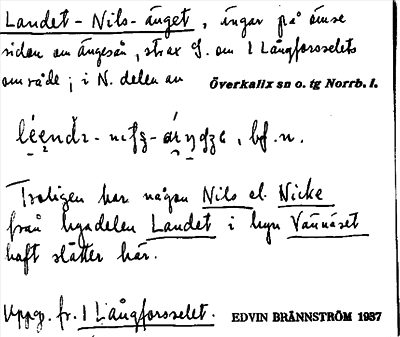 Landet-Nils-änget, ängar på ömse
sidor om Ängesån, strax S. om 1 Långforsselets
område; i N. delen av Överkalix sn o. tg Norrb. l.
bf. n.
Troligen har någon Nils el. Nicke
från byadelen Landet i byn Vännäset
haft slåtter här.
Uppg. fr. 1 Långforsselet. EDVIN BRÄNNSTRÖM 1937